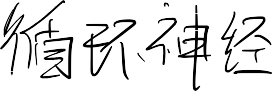 循环神经